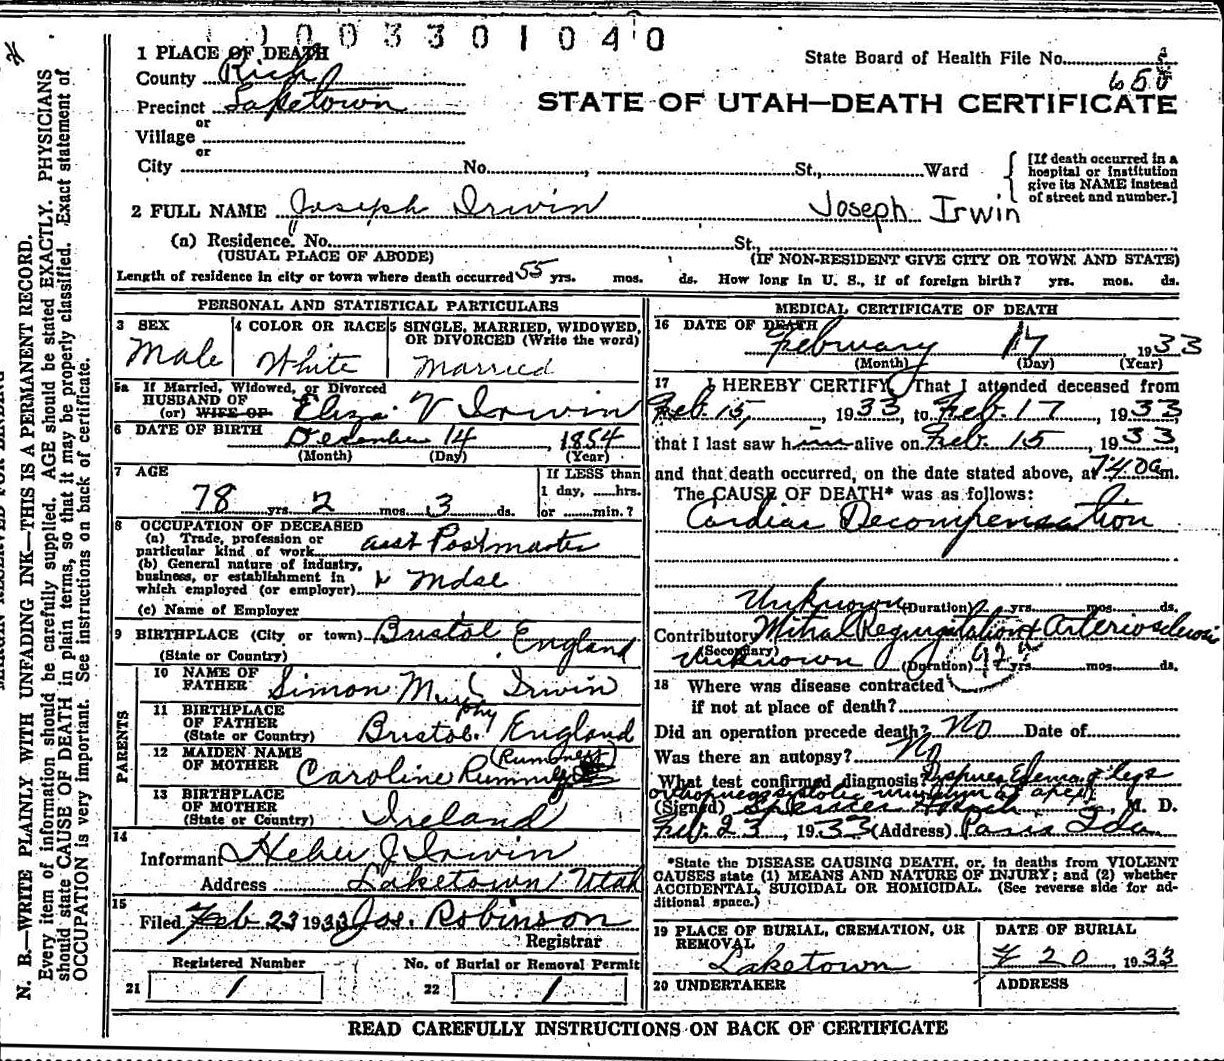 003301040
1 PLACE OF DEATH
State Board of Health File No.
County Rich
650
Precinct Laketown
STATE OF UTAH—DEATH CERTIFICATE
or
Village
or
City No. , St., Ward
[If death occurred in a
hospital or institution
give its NAME instead
of street and number.]
2 FULL NAME Joseph Irwin Joseph Irwin
(a) Residence. No. St.,
(USUAL PLACE OF ABODE) (IF NON-RESIDENT GIVE CITY OR TOWN AND STATE)
Length of residence in city or town where death occurred 55 yrs. mos. ds. How long in U. S., if of foreign birth? yrs. mos. ds.
PERSONAL AND STATISTICAL PARTICULARS
3 SEX
Male
4 COLOR OR RACE
White
5 SINGLE, MARRIED, WIDOWED,
OR DIVORCED (Write the word)
Married
5a If Married, Widowed, or Divorced
HUSBAND OF
(or) WIFE OF Eliza V Irwin
6 DATE OF BIRTH December 14, 1854
(Month) (Day) (Year)
7 AGE
78 yrs. 2 mos. 3 ds.
If LESS than
1 day, ......hrs.
or ......min.?
8 OCCUPATION OF DECEASED
(a) Trade, profession or
particular kind of work asst Postmaster
(b) General nature of industry,
business, or establishment in
which employed (or employer) & Mdse
(c) Name of Employer
9 BIRTHPLACE (City or town) Bristol England
(State or Country)
PARENTS
10 NAME OF
FATHER Simon Murphy Irwin
11 BIRTHPLACE
OF FATHER
(State or Country) Bristol England
12 MAIDEN NAME
OF MOTHER Caroline
13 BIRTHPLACE
OF MOTHER
(State or Country) Ireland
14
Informant Heber J Irwin
Address Laketown Utah
15
Filed Feb 23 1933 Jos. Robinson
Registrar
Registered Number
21 1
No. of Burial or Removal Permit
22 1
MEDICAL CERTIFICATE OF DEATH
16 DATE OF DEATH
February 17 1933
(Month) (Day) (Year)
17 I HEREBY CERTIFY, That I attended deceased from
Feb. 15, 1933, to Feb. 17, 1933
that I last saw him alive on Feb. 15, 1933,
and that death occurred, on the date stated above, at 7:40 a m.
The CAUSE OF DEATH* was as follows:
Cardiac Decompensation
Unknown (Duration) yrs. mos. ds.
Contributory Mitral Regurgitation & Arteriosclerosis
(Secondary)
Unknown (Duration) yrs. mos. ds.
92a
18 Where was disease contracted
if not at place of death?
Did an operation precede death? No Date of
Was there an autopsy? No
What test confirmed diagnosis? Dyspnea Edema of legs
orthopnea systolic murmur at apex
(Signed) , M. D.
Feb. 23, 1933 (Address) Paris Ida
*State the DISEASE CAUSING DEATH, or, in deaths from VIOLENT
CAUSES state (1) MEANS AND NATURE OF INJURY; and (2) whether
ACCIDENTAL, SUICIDAL OR HOMICIDAL. (See reverse side for ad-
ditional space.)
19 PLACE OF BURIAL, CREMATION, OR
REMOVAL
Laketown
DATE OF BURIAL
20, 1933
20 UNDERTAKER
ADDRESS
READ CAREFULLY INSTRUCTIONS ON BACK OF CERTIFICATE
N. B.—WRITE PLAINLY WITH UNFADING INK—THIS IS A PERMANENT RECORD.
Every item of information should be carefully supplied. AGE should be stated EXACTLY. PHYSICIANS
should state CAUSE OF DEATH in plain terms, so that it may be properly classified. Exact statement of
OCCUPATION is very important. See instructions on back of certificate.